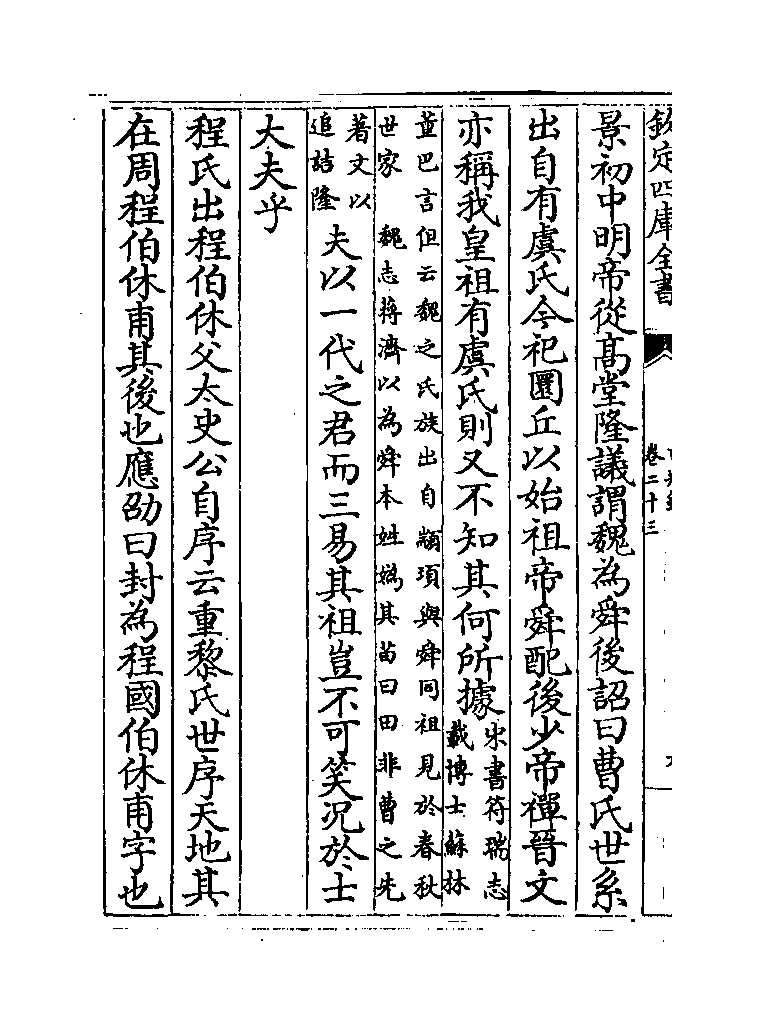 欽定四庫全書
卷二十三
景初中明帝從高堂隆議謂魏為舜後詔曰曹氏世系
出自有虞氏今祀圜丘以始祖帝舜配後少帝禪晉文
亦稱我皇祖有虞氏則又不知其何所據
宋書符瑞志
載博士蘇林
董巴言但云魏之氏族出自顓頊與舜同祖見於春秋
世家 魏志蔣濟以為舜本姓媯其苗曰田非曹之先
著文以
追詰隆
夫以一代之君而三易其祖豈不可笑況於士
大夫乎
程氏出程伯休父太史公自序云重黎氏世序天地其
在周程伯休甫其後也應劭曰封為程國伯休甫字也